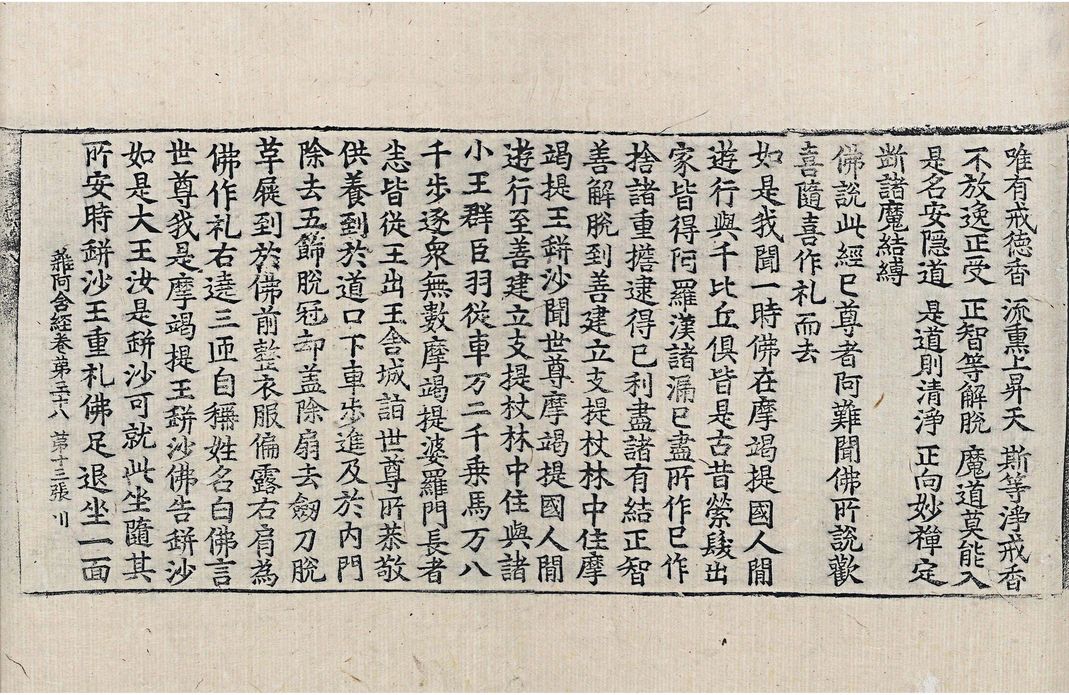 唯有戒德香 流熏上昇天 斯等淨戒香
不放逸正受 正智等解脫 魔道莫能入
是名安隱道 是道則清淨 正向妙禪定
斷諸魔結縛
佛說此經已尊者阿難聞佛所說歡
喜隨喜作礼而去
如是我聞一時佛在摩竭提國人閒
遊行與千比丘俱皆是古昔縈髮出
家皆得阿羅漢諸漏已盡所作已作
捨諸重擔逮得已利盡諸有結正智
善解脫到善建立支提杖林中住摩
竭提王缾沙聞世尊摩竭提國人閒
遊行至善建立支提杖林中住與諸
小王群臣羽從車万二千乗馬万八
千步逐衆無數摩竭提婆羅門長者
悉皆從王出王舍城詣世尊所恭敬
供養到於道口下車步進及於內門
除去五飾脫冠却盖除扇去劔刀脫
革屣到於佛前整衣服偏露右肩為
佛作礼右遶三匝自稱姓名白佛言
世尊我是摩竭提王缾沙佛告缾沙
如是大王汝是缾沙可就此坐隨其
所安時缾沙王重礼佛足退坐一面
雜阿含經卷第三十八 第十三張 川